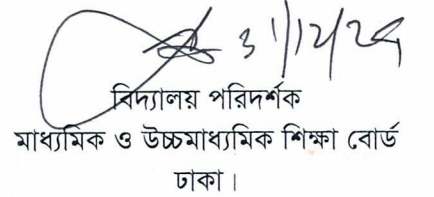 31/12/24
বিদ্যালয় পরিদর্শক
মাধ্যমিক ও উচ্চমাধ্যমিক শিক্ষা বোর্ড
ঢাকা।